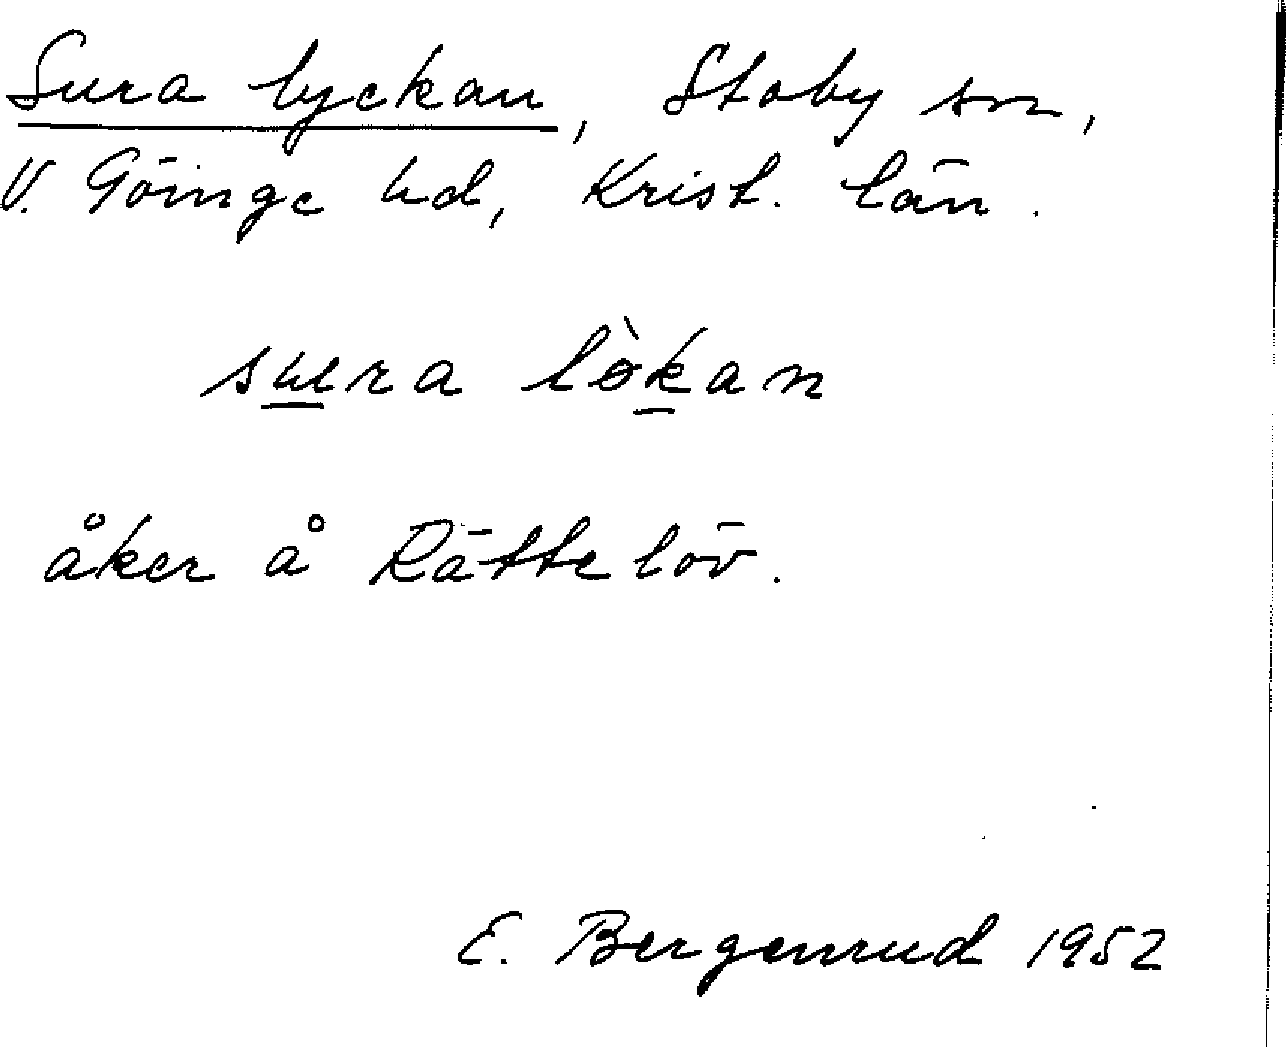 Sura lyckan, Stoby sn,
V. Göinge hd, Krist. län.
sura lòkan
åker å Rättelöv.
E. Bergenrud 1952